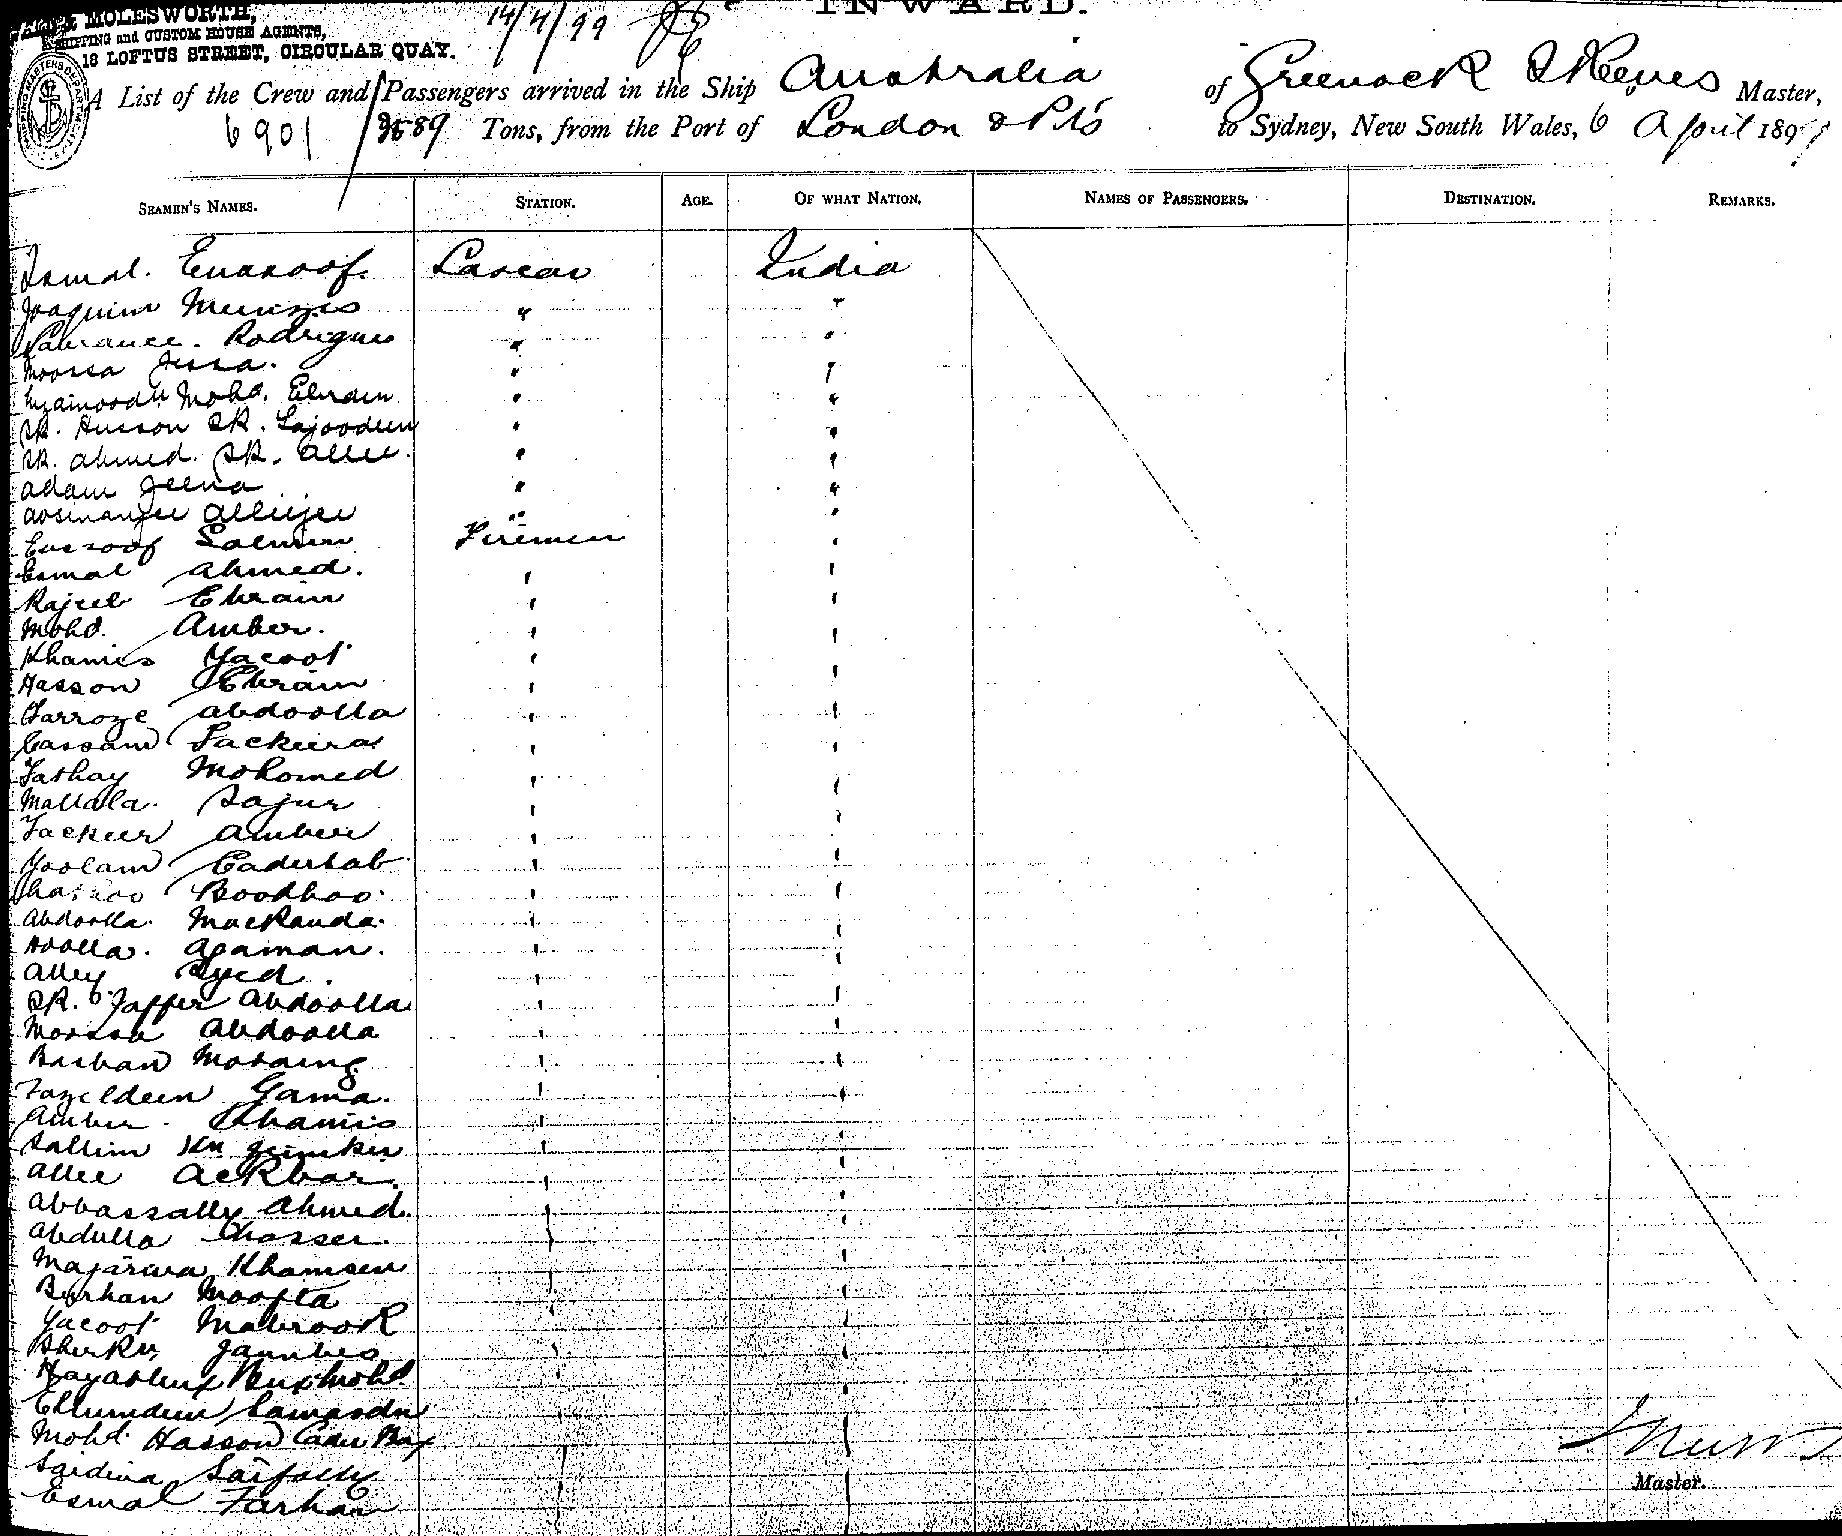 MOLESWORTH,
SHIPPING and CUSTOM HOUSE AGENTS,
18 LOFTUS STREET, CIRCULAR QUAY.
14/4/99
INWARD.
A List of the Crew and Passengers arrived in the Ship Australia of Greenock Master,
6901 / 3589 Tons, from the Port of London & Pts to Sydney, New South Wales, 6 April 189
SEAMEN'S NAMES. STATION. AGE. OF WHAT NATION. NAMES OF PASSENGERS. DESTINATION. REMARKS.
Ismal. Eusoof. Lascar India
Joaquim Menezes " "
Laurance. Rodrigues " "
Moossa Jessa. " "
Mohd. Ebram " "
SK. Husson SK. Tajoodeen " "
SK. Ahmed. SK. Allee. " "
Adam Jeena " "
Allijee " "
Eussoof Salmin Firemen "
Esmal Ahmed. " "
Rajeeb Ebraim " "
Mohd. Amber. " "
Khamis Yacoot " "
Hasson Ebraim " "
Farroze Abdoolla " "
Cassam Fackeera " "
Fathay Mohomed " "
Mallala. Sajur " "
Fackeer Amber " "
Goolam Cadersab " "
Boodhoo. " "
Abdoolla. Mackauda. " "
Agaman. " "
Alley Syed. " "
SK. Jaffer Abdoolla " "
Moossa Abdoolla " "
Barhan " "
Fazeldeen Gama. " "
Amber. Khamis " "
Sallim " "
Allee Ackbar. " "
Abbassally Ahmed. " "
Abdulla " "
Khamseen " "
Borhan Moofta " "
Yacoot Mabrook " "
" "
" "
" "
Mohd. Hasson Cader Bux " "
Saifally " "
Esmal Farhan " "
Master.